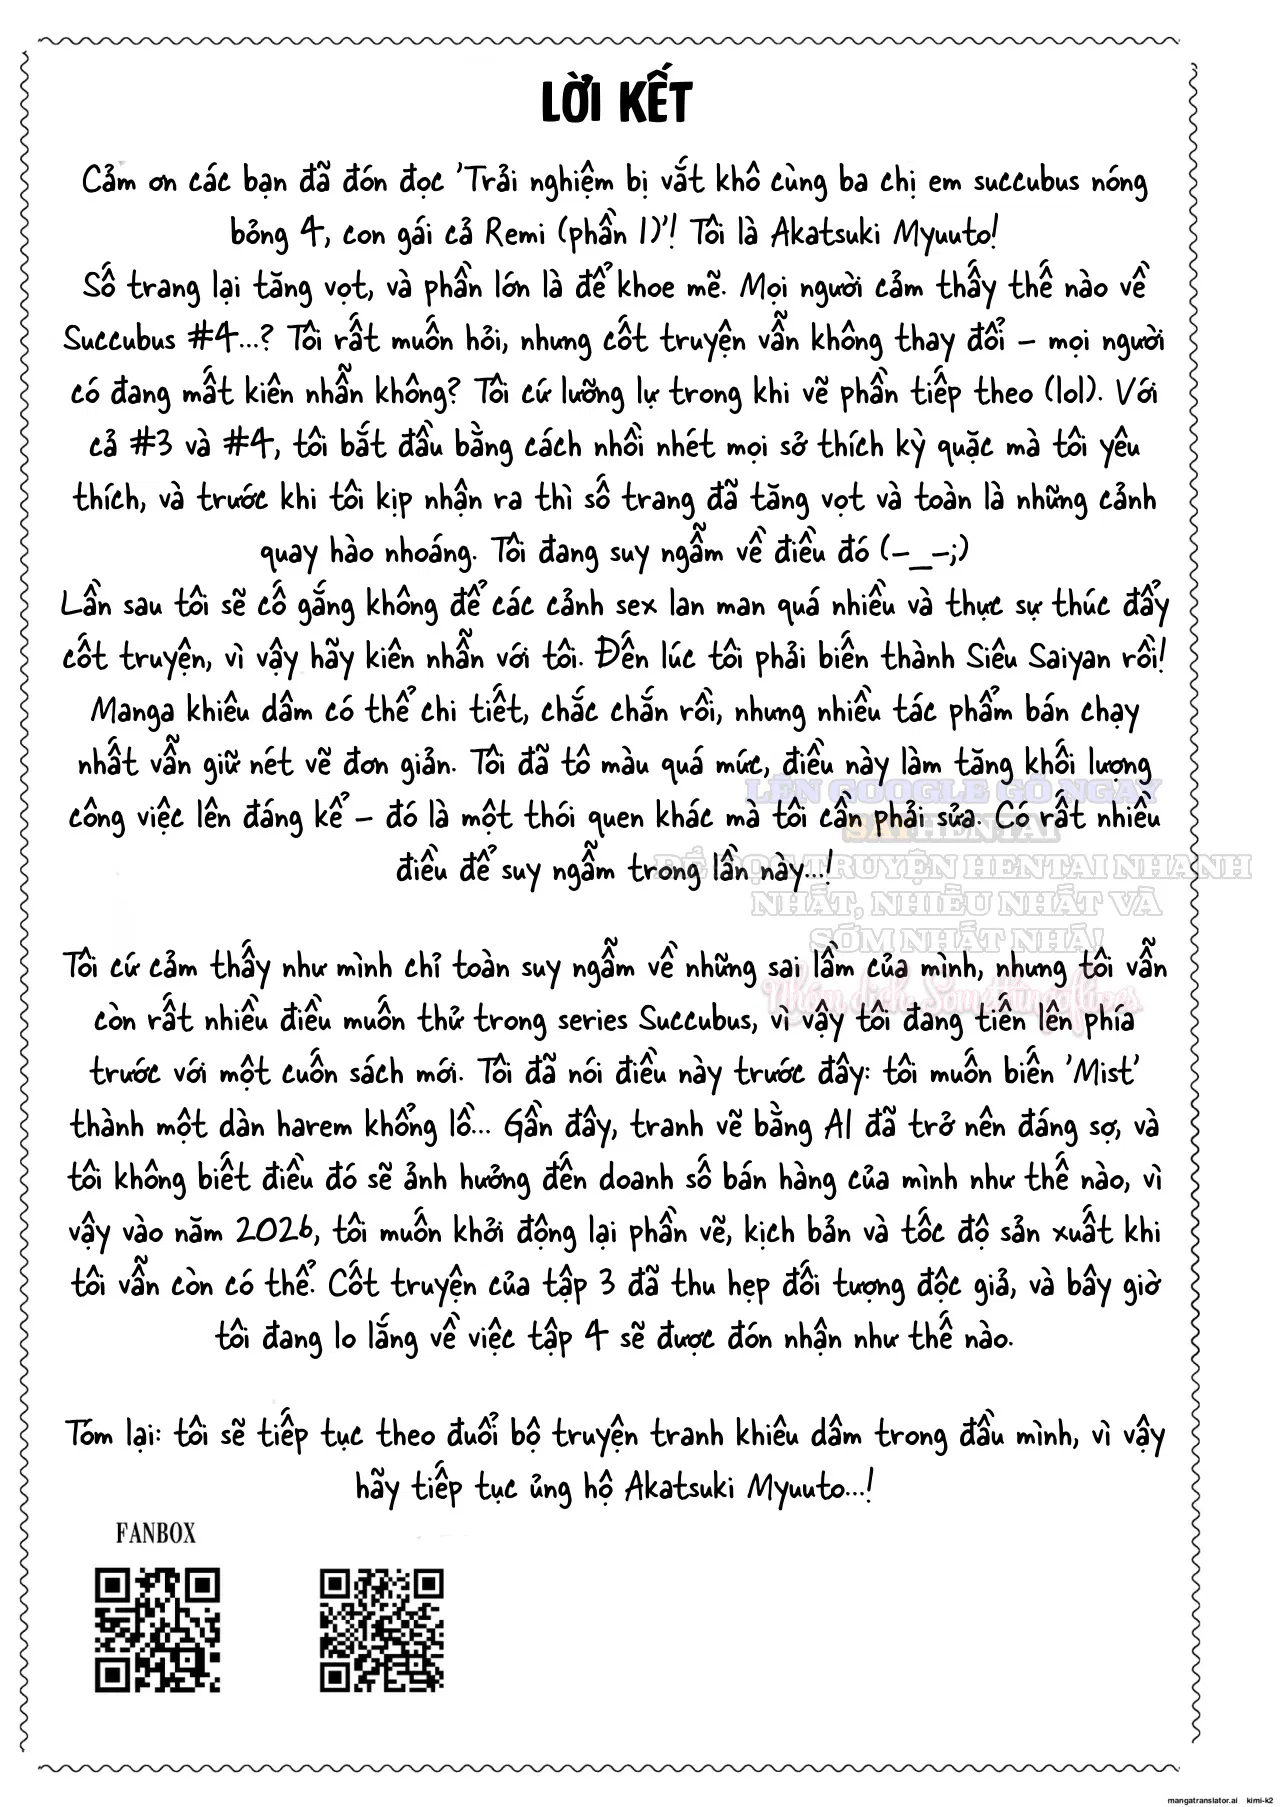 LỜI KẾT
Cảm ơn các bạn đã đón đọc 'Trải nghiệm bị vắt khô cùng ba chị em succubus nóng
bỏng 4, con gái cả Remi (phần 1)'! Tôi là Akatsuki Myuuto!
Số trang lại tăng vọt, và phần lớn là để khoe mẽ. Mọi người cảm thấy thế nào về
Succubus #4...? Tôi rất muốn hỏi, nhưng cốt truyện vẫn không thay đổi – mọi người
có đang mất kiên nhẫn không? Tôi cứ lưỡng lự trong khi vẽ phần tiếp theo (lol). Với
cả #3 và #4, tôi bắt đầu bằng cách nhồi nhét mọi sở thích kỳ quặc mà tôi yêu
thích, và trước khi tôi kịp nhận ra thì số trang đã tăng vọt và toàn là những cảnh
quay hào nhoáng. Tôi đang suy ngẫm về điều đó (-_-;)
Lần sau tôi sẽ cố gắng không để các cảnh sex lan man quá nhiều và thực sự thúc đẩy
cốt truyện, vì vậy hãy kiên nhẫn với tôi. Đến lúc tôi phải biến thành Siêu Saiyan rồi!
Manga khiêu dâm có thể chi tiết, chắc chắn rồi, nhưng nhiều tác phẩm bán chạy
nhất vẫn giữ nét vẽ đơn giản. Tôi đã tô màu quá mức, điều này làm tăng khối lượng
LÊN GOOGLE GÕ NGAY
công việc lên đáng kể – đó là một thói quen khác mà tôi cần phải sửa. Có rất nhiều
SAYHENTAI
điều để suy ngẫm trong lần này...!
ĐỂ ĐỌC TRUYỆN HENTAI NHANH
NHẤT, NHIỀU NHẤT VÀ
SỚM NHẤT NHÁ!
Tôi cứ cảm thấy như mình chỉ toàn suy ngẫm về những sai lầm của mình, nhưng tôi vẫn
Nhóm dịch: Somethingoflives
còn rất nhiều điều muốn thử trong series Succubus, vì vậy tôi đang tiến lên phía
trước với một cuốn sách mới. Tôi đã nói điều này trước đây: tôi muốn biến 'Mist'
thành một dàn harem khổng lồ... Gần đây, tranh vẽ bằng AI đã trở nên đáng sợ, và
tôi không biết điều đó sẽ ảnh hưởng đến doanh số bán hàng của mình như thế nào, vì
vậy vào năm 2026, tôi muốn khởi động lại phần vẽ, kịch bản và tốc độ sản xuất khi
tôi vẫn còn có thể. Cốt truyện của tập 3 đã thu hẹp đối tượng độc giả, và bây giờ
tôi đang lo lắng về việc tập 4 sẽ được đón nhận như thế nào.
Tóm lại: tôi sẽ tiếp tục theo đuổi bộ truyện tranh khiêu dâm trong đầu mình, vì vậy
hãy tiếp tục ủng hộ Akatsuki Myuuto...!
FANBOX
mangatranslator.ai kimi-k2